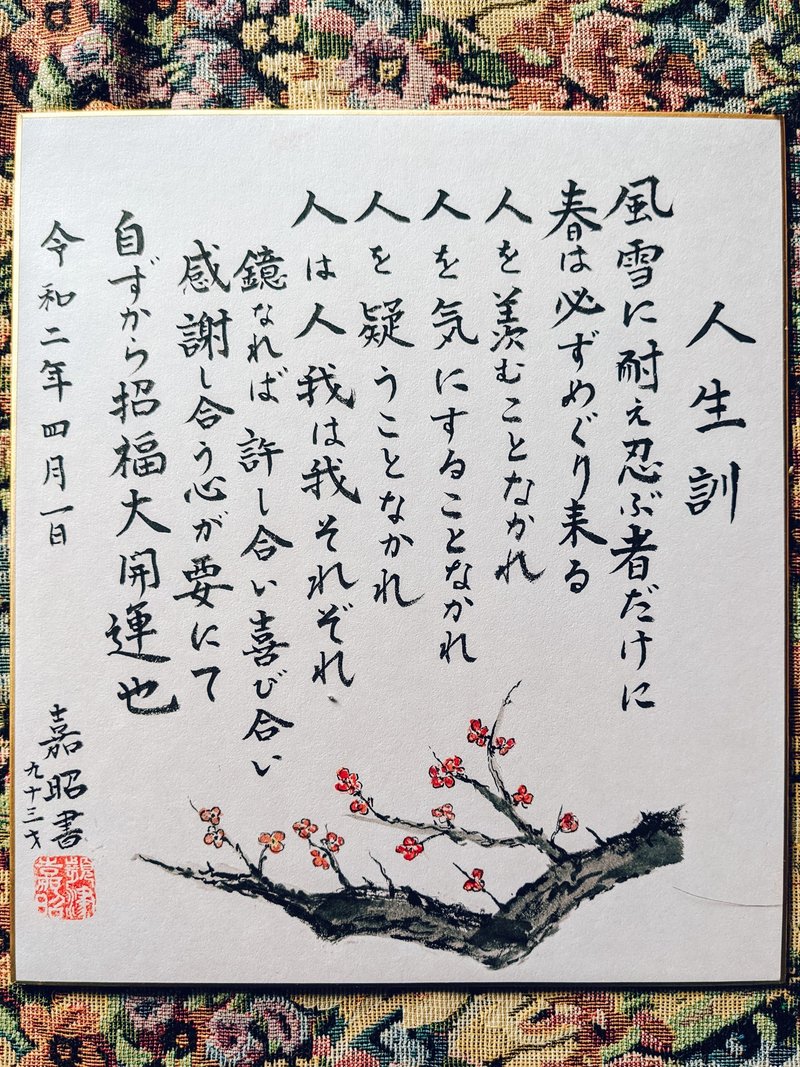 人生訓
風雪に耐え忍ぶ者だけに
春は必ずめぐり来る
人を羨むことなかれ
人を気にすることなかれ
人を疑うことなかれ
人は人我は我それぞれ
鏡なれば許し合い喜び合い
感謝し合う心が要にて
自ずから招福大開運也
令和二年四月一日
嘉昭書
九十三才